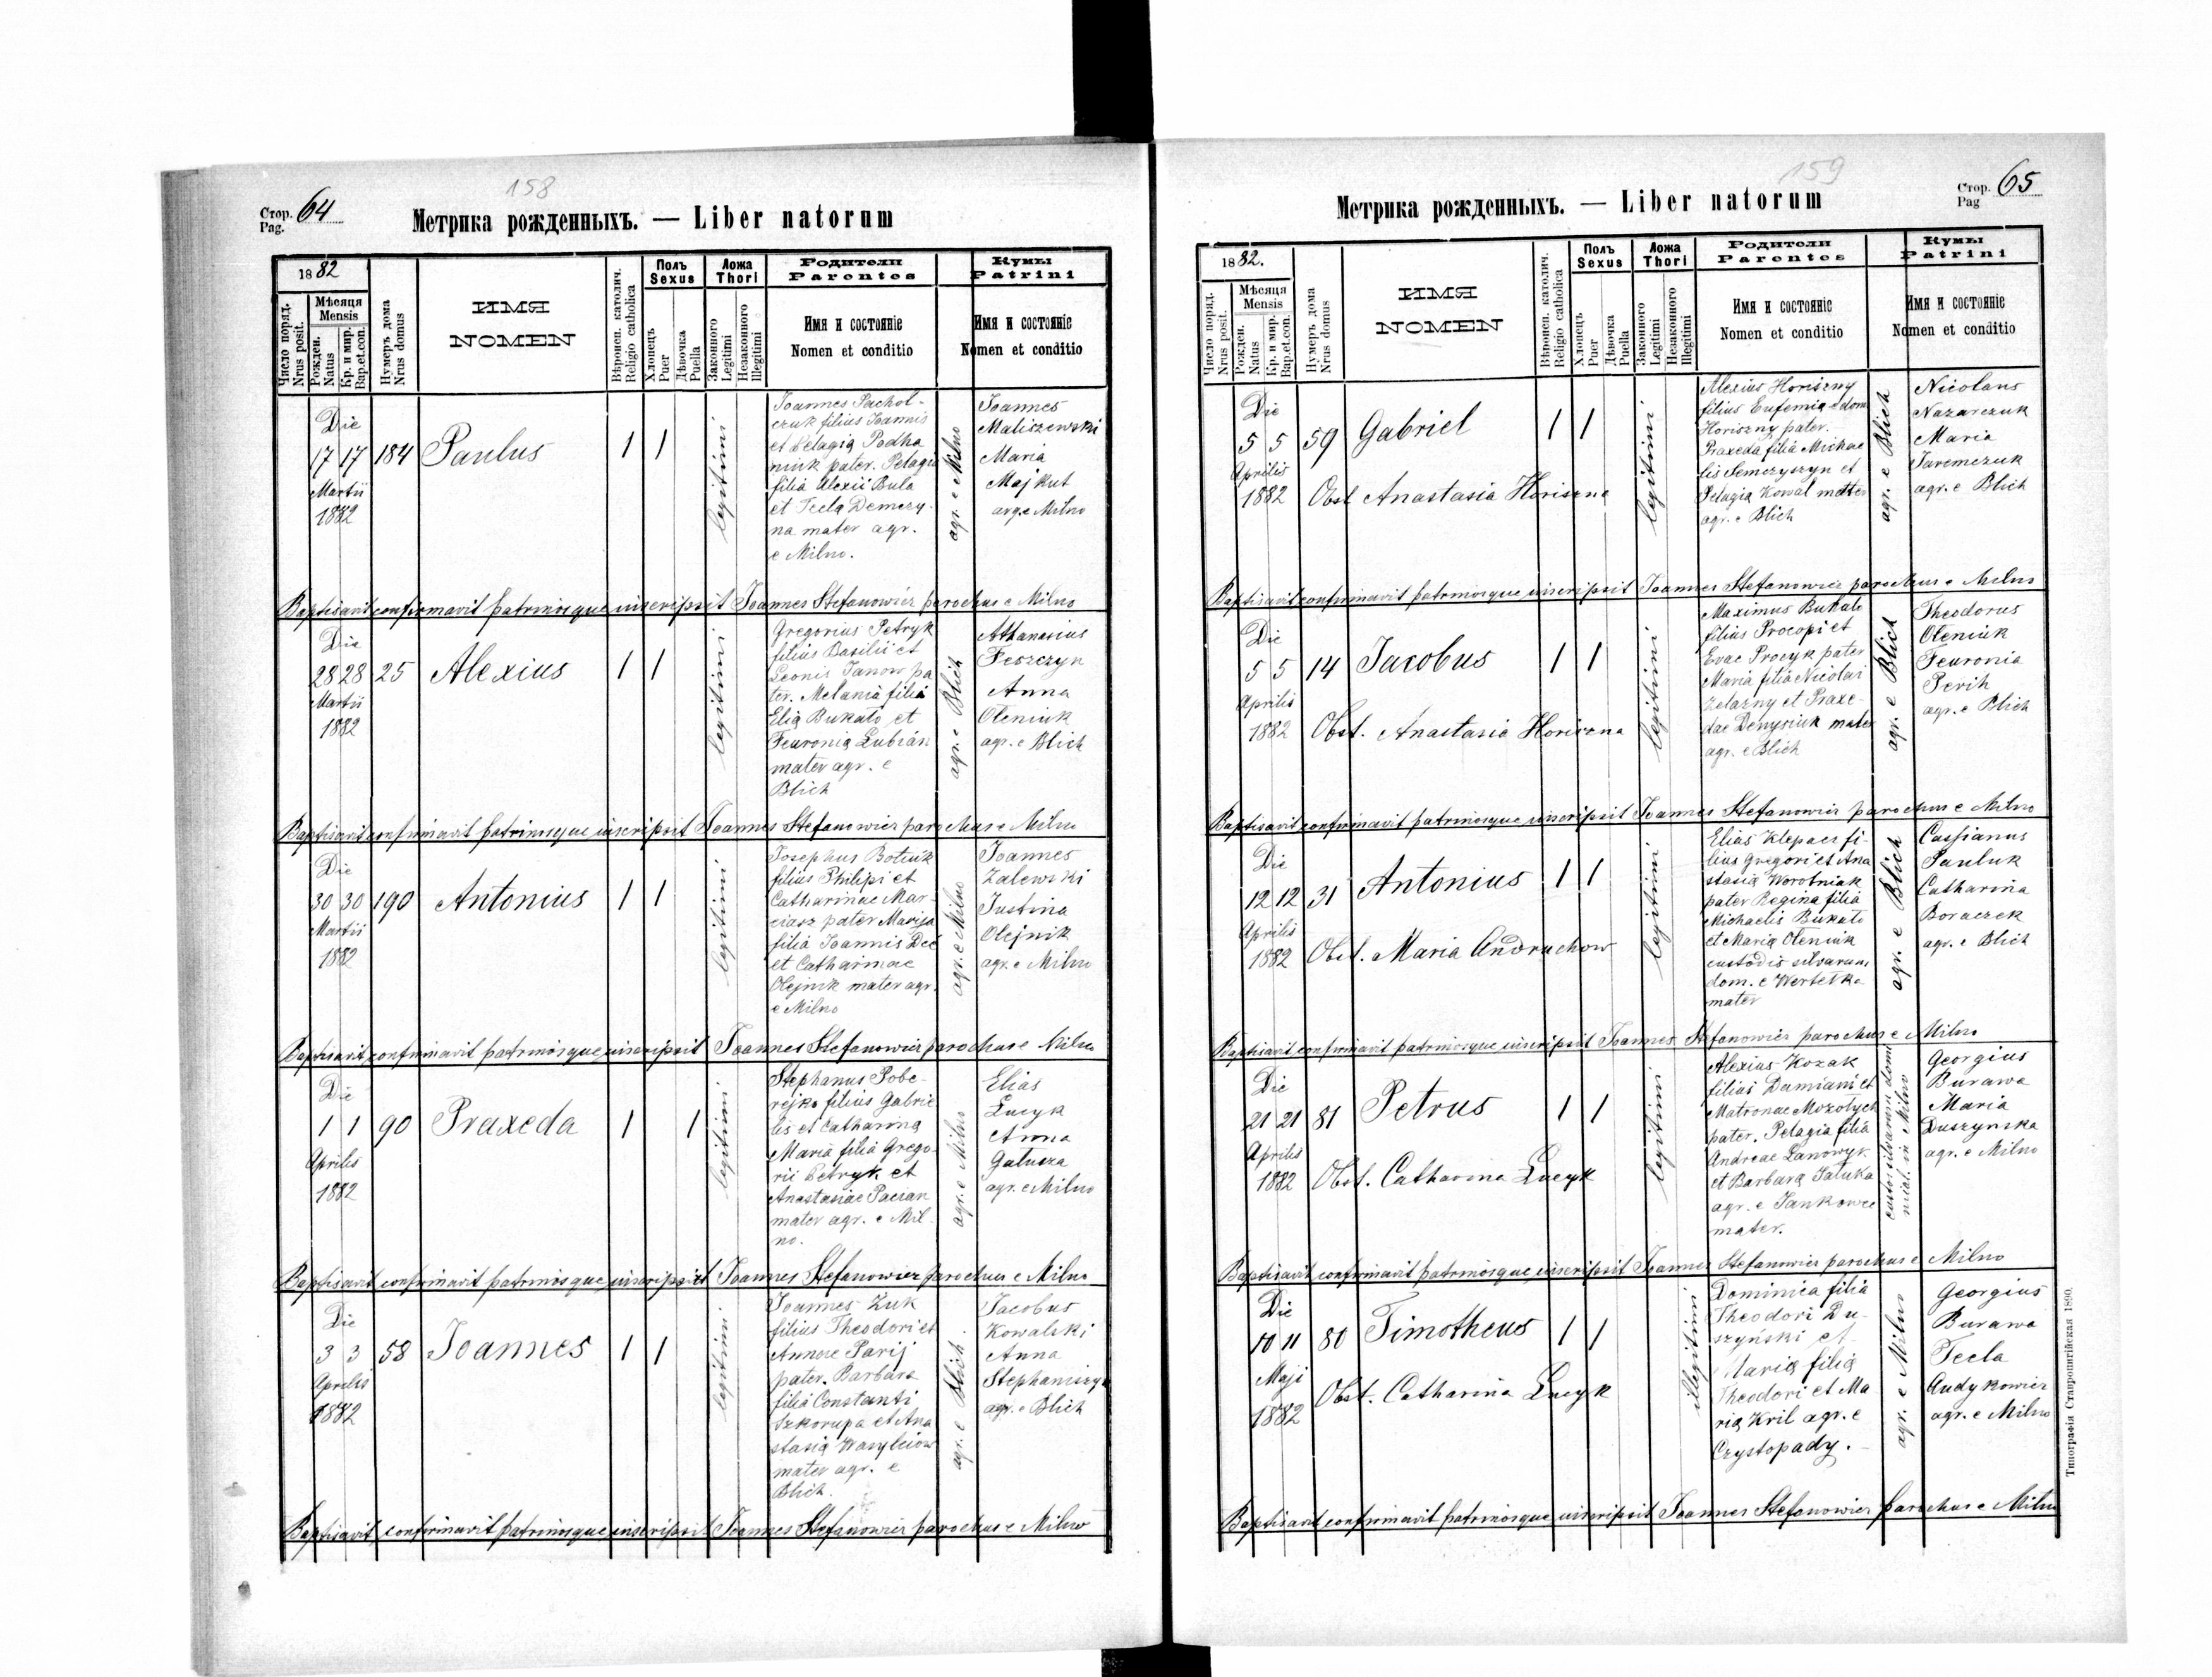 158
Стор. 64
Pag.
Метрика рожденныхъ. — Liber natorum
1882
Число поряд.
Nrus posit.
Мѣсяця
Mensis
Рожден.
Natus
Кр. и мир.
Bap.et.con.
Нумеръ дома
Nrus domus
ИМЯ
NOMEN
Вѣроисп. католич.
Religio catholica
Полъ
Sexus
Хлопецъ
Puer
Дѣвочка
Puella
Ложа
Thori
Законного
Legitimi
Незаконного
Illegitimi
Родители
Parentes
Имя и состояніе
Nomen et conditio
Кумы
Patrini
Имя и состояніе
Nomen et conditio
Die
17 17 184 Paulus 1 1
Martii
1882
legitimi
Joannes Pachol-
czuk filius Joannis
et Pelagia Podha
niuk pater. Pelagia
filia Alexii Bula
et Tecla Demczy-
na mater agr.
e Milno.
agr. e Milno
Joannes
Maliszewski
Maria
Majkut
agr. e Milno
Baptisavit confirmavit patrinosque inscripsit Joannes Stefanowicz parochus e Milno
Die
28 28 25 Alexius 1 1
Martii
1882
legitimi
Gregorius Petryk
filius Basilii et
Leonis Janow pa
ter. Melania filia
Elia Bukato et
Feuronia Lubian
mater agr. e
Blich
agr. e Blich
Athanasius
Feszczyn
Anna
Oleniuk
agr. e Blich
Baptisavit confirmavit patrinosque inscripsit Joannes Stefanowicz parochus e Milno
Die
30 30 190 Antonius 1 1
Martii
1882
legitimi
Josephus Botiuk
filius Philipi et
Catharinae Mar-
ciasz pater Maryja
filia Joannis Dec
et Catharinae
Olejnik mater agr.
e Milno
agr. e Milno
Joannes
Zalewski
Justina
Olejnik
agr. e Milno
Baptisavit confirmavit patrinosque inscripsit Joannes Stefanowicz parochus e Milno
Die
1 1 90 Praxeda 1 1
Aprilis
1882
legitimi
Stephanus Pobe-
rejko filius Gabrie
lis et Catharina
Maria filia Grego-
rii Petryk et
Anastasiae Pacian
mater agr. e Mil
no.
agr. e Milno
Elias
Lucyk
Anna
Gatusza
agr. e Milno
Baptisavit confirmavit patrinosque inscripsit Joannes Stefanowicz parochus e Milno
Die
3 3 58 Joannes 1 1
Aprilis
1882
legitimi
Joannes Zuk
filius Theodori et
Annae Parij
pater. Barbara
filia Constanti
Szkorupa et Ana
stasia Wasylciow
mater agr. e
Blich.
agr. e Blich.
Jacobus
Kowalski
Anna
Stephaniszyn
agr. e Blich
Baptisavit confirmavit patrinosque inscripsit Joannes Stefanowicz parochus e Milno
159
Стор. 65
Pag
Метрика рожденныхъ. — Liber natorum
1882.
Число поряд.
Nrus posit.
Мѣсяця
Mensis
Рожден.
Natus
Кр. и мир.
Bap.et.con.
Нумеръ дома
Nrus domus
ИМЯ
NOMEN
Вѣроисп. католич.
Religio catholica
Полъ
Sexus
Хлопецъ
Puer
Дѣвочка
Puella
Ложа
Thori
Законного
Legitimi
Незаконного
Illegitimi
Родители
Parentes
Имя и состояніе
Nomen et conditio
Кумы
Patrini
Имя и состояніе
Nomen et conditio
Die
5 5 59 Gabriel 1 1
Aprilis
1882 Obst Anastasia Horiszna
legitimi
Alexius Horiszny
filius Eufemia
Horiszny pater.
Praxeda filia Michae
lis Semczyszyn et
Pelagia Kowal mater
agr. e Blich
agr. e Blich
Nicolaus
Nazarczuk
Maria
Jaremczuk
agr. e Blich
Baptisavit confirmavit patrinosque inscripsit Joannes Stefanowicz parochus e Milno
Die
5 5 14 Jacobus 1 1
Aprilis
1882 Obst. Anastasia Horiszna
legitimi
Maximus Bukato
filius Procopi et
Evae Procyk pater
Maria filia Nicolai
Zelazny et Praxe-
dae Denysiuk mater
agr. e Blich
agr. e Blich
Theodorus
Oleniuk
Feuronia
Perih
agr. e Blich
Baptisavit confirmavit patrinosque inscripsit Joannes Stefanowicz parochus e Milno
Die
12 12 31 Antonius 1 1
Aprilis
1882 Obst. Maria Andruchow
legitimi
Elias Klepacz fi-
lius Gregori et Ana
stasia Worotniak
pater Regina filia
Michaelis Bukato
et Maria Oleniuk
custodis silvarum
dom. e Wertelka
mater
agr. e Blich
Cassianus
Pauluk
Catharina
Boraczek
agr. e Blich
Baptisavit confirmavit patrinosque inscripsit Joannes Stefanowicz parochus e Milno
Die
21 21 81 Petrus 1 1
Aprilis
1882 Obst. Catharina Lucyk
legitimi
Alexius Kozak
filius Damiani et
Matronae Mozolych
pater. Pelagia filia
Andreae Lanowyk
et Barbara Jaluka
agr. e Jankowce
mater.
custos silvarum domi
nial. in Milno
Georgius
Burawa
Maria
Duszynska
agr. e Milno
Baptisavit confirmavit patrinosque inscripsit Joannes Stefanowicz parochus e Milno
Die
10 11 80 Timotheus 1 1
Maji
1882
Obst. Catharina Lucyk
illegitimi
Dominica filia
Theodori Du-
szyński et
Maria filia
Theodori et Ma
ria Kril agr. e
Czystopady.
agr. e Milno
Georgius
Burawa
Tecla
Audykowicz
agr. e Milno
Baptisavit confirmavit patrinosque inscripsit Joannes Stefanowicz parochus e Milno
Типографія Ставропигійская 1890.